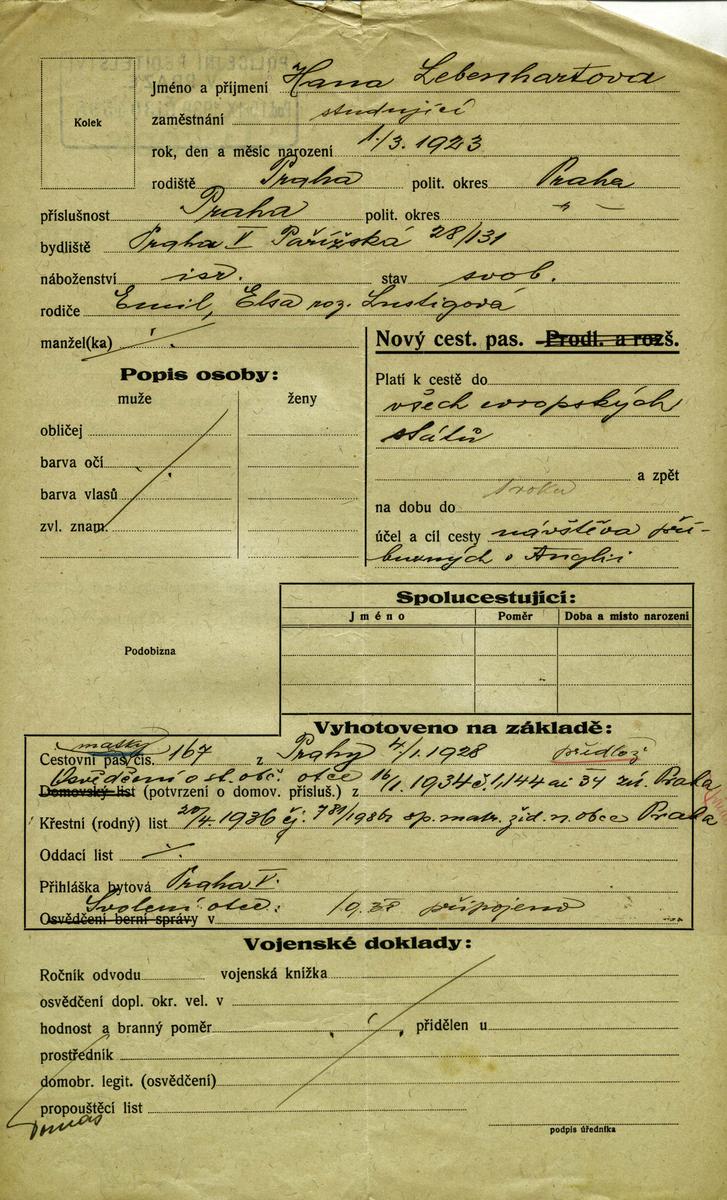 POLICEJNÍ ŘEDITELSTVÍ
Kolek
Jméno a příjmení Hana Lebenhartova
zaměstnání studující
rok, den a měsíc narození 1./3. 1923
rodiště Praha polit. okres Praha
příslušnost Praha polit. okres " —
bydliště Praha V Pařížská 28/131
náboženství isr. stav svob.
rodiče Emil, Elsa roz. Lustigová
manžel(ka) ./.
Nový cest. pas. Prodl. a rozš.
Popis osoby:
muže ženy
obličej
barva očí
barva vlasů
zvl. znam.
Platí k cestě do
všech evropských
států
a zpět
1 roku
na dobu do
účel a cíl cesty návštěva pří-
buzných v Anglii
Podobizna
Spolucestující:
Jméno Poměr Doba a místo narození
Vyhotoveno na základě:
matky
Cestovní pas čís. 167 z Prahy 4/1. 1928 předlož
Osvědčení o st. obč. otce 16/1. 1934 č. 1,144 ai 34 Praha
Domovský list (potvrzení o domov. přísluš.) z
Křestní (rodný) list 20/4. 1936 čj. 781/1936 sp. matr. žid. n. obce Praha
Oddací list ./.
Přihláška bytová Praha V.
Svolení otce: připojeno
Osvědčení berní správy v
Vojenské doklady:
Ročník odvodu vojenská knížka
osvědčení dopl. okr. vel. v
hodnost a branný poměr přidělen u
prostředník
domobr. legit. (osvědčení)
propouštěcí list
podpis úředníka